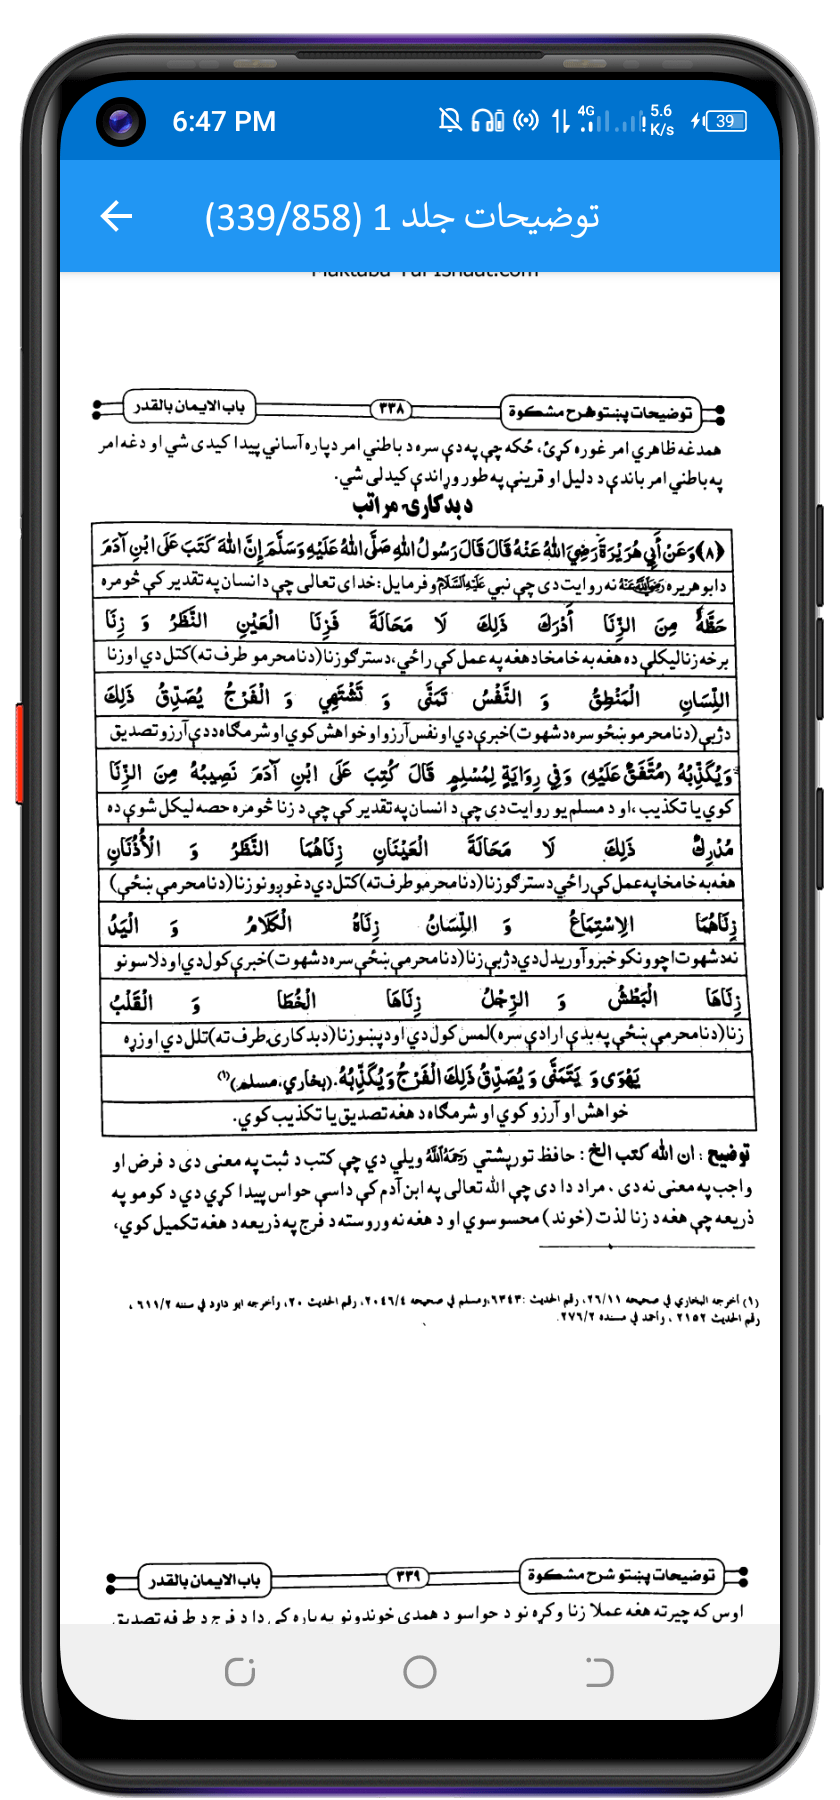 6:47 PM
4G
5.6
K/s
39
توضیحات جلد 1 (339/858)
باب الایمان بالقدر
۳۳۸
توضیحات پښتو شرح مشکوة
همدغه ظاهري امر غوره کړئ، ځکه چې په دې سره د باطني امر دپاره آساني پیدا کیدی شي او دغه امر
په باطني امر باندې د دلیل او قرینې په طور وړاندې کیدلی شي.
د بدکارۍ مراتب
﴿٨﴾ وَعَنْ أَبِي هُرَيْرَةَ رَضِيَ اللهُ عَنْهُ قَالَ قَالَ رَسُولُ اللهِ صَلَّى اللهُ عَلَيْهِ وَسَلَّمَ إِنَّ اللهَ كَتَبَ عَلَى ابْنِ آدَمَ
دابوهریره نه روایت دی چې نبي وفرمایل: خدای تعالی چې د انسان په تقدیر کې څومره
حَظَّهُ مِنَ الزِّنَا أَدْرَكَ ذَلِكَ لَا مَحَالَةَ فَزِنَا الْعَيْنِ النَّظَرُ وَ زِنَا
برخه زنا لیکلې ده هغه به خامخا دهغه په عمل کې راځي، دسترګو زنا (دنامحرمو طرف ته) کتل دي او زنا
اللِّسَانِ الْمَنْطِقُ وَ النَّفْسُ تَمَنَّى وَ تَشْتَهِي وَ الْفَرْجُ يُصَدِّقُ ذَلِكَ
دژبې (دنامحرمو ښځو سره د شهوت) خبرې دي او نفس آرزو او خواهش کوي او شرمګاه ددې آرزو تصدیق
وَيُكَذِّبُهُ (مُتَّفَقٌ عَلَيْهِ) وَفِي رِوَايَةٍ لِمُسْلِمٍ قَالَ كُتِبَ عَلَى ابْنِ آدَمَ نَصِيبُهُ مِنَ الزِّنَا
کوي یا تکذیب، او د مسلم یو روایت دی چې د انسان په تقدیر کې چې د زنا څومره حصه لیکل شوې ده
مُدْرِكٌ ذَلِكَ لَا مَحَالَةَ الْعَيْنَانِ زِنَاهُمَا النَّظَرُ وَ الْأُذُنَانِ
هغه به خامخا په عمل کې راځي دسترګو زنا (دنامحرمو طرف ته) کتل دي دغوږونو زنا (دنامحرمې ښځې)
زِنَاهُمَا الِاسْتِمَاعُ وَ اللِّسَانُ زِنَاهُ الْكَلَامُ وَ الْيَدُ
نه د شهوت اچوونکو خبرو آوریدل دي دژبې زنا (دنامحرمې ښځې سره د شهوت) خبرې کول دي او دلاسونو
زِنَاهَا الْبَطْشُ وَ الرِّجْلُ زِنَاهَا الْخُطَا وَ الْقَلْبُ
زنا (دنامحرمې ښځې په بدې ارادې سره) لمس کول دي او دپښو زنا (د بدکارۍ طرف ته) تلل دي او زړه
يَهْوَى وَ يَتَمَنَّى وَ يُصَدِّقُ ذَلِكَ الْفَرْجُ وَيُكَذِّبُهُ. (بخاري، مسلم)(۱)
خواهش او آرزو کوي او شرمګاه د هغه تصدیق یا تکذیب کوي.
توضیح : ان الله کتب الخ : حافظ تورپشتي ویلي دي چې کتب د ثبت په معنی دی د فرض او
واجب په معنی نه دی، مراد دا دی چې الله تعالی په ابن آدم کې داسې حواس پیدا کړي دي د کومو په
ذریعه چې هغه د زنا لذت (خوند) محسوسوي او د هغه نه وروسته د فرج په ذریعه د هغه تکمیل کوي،
(۱) أخرجه البخاري في صحیحه ۲٦/۱۱، رقم الحدیث :٦۳٤۳، ومسلم في صحیحه ۲۰٤٦/٤، رقم الحدیث ۲۰، وأخرجه ابو داود في سننه ٦۱۱/۲ ،
رقم الحدیث ۲۱۵۲ ، وأحمد في مسنده ۲۷٦/۲.
باب الایمان بالقدر
۳۳۹
توضیحات پښتو شرح مشکوة
اوس که چیرته هغه عملا زنا وکړه نو د حواسو د همدې خوندونو په باره کې دا د فرج د طرفه تصدیق